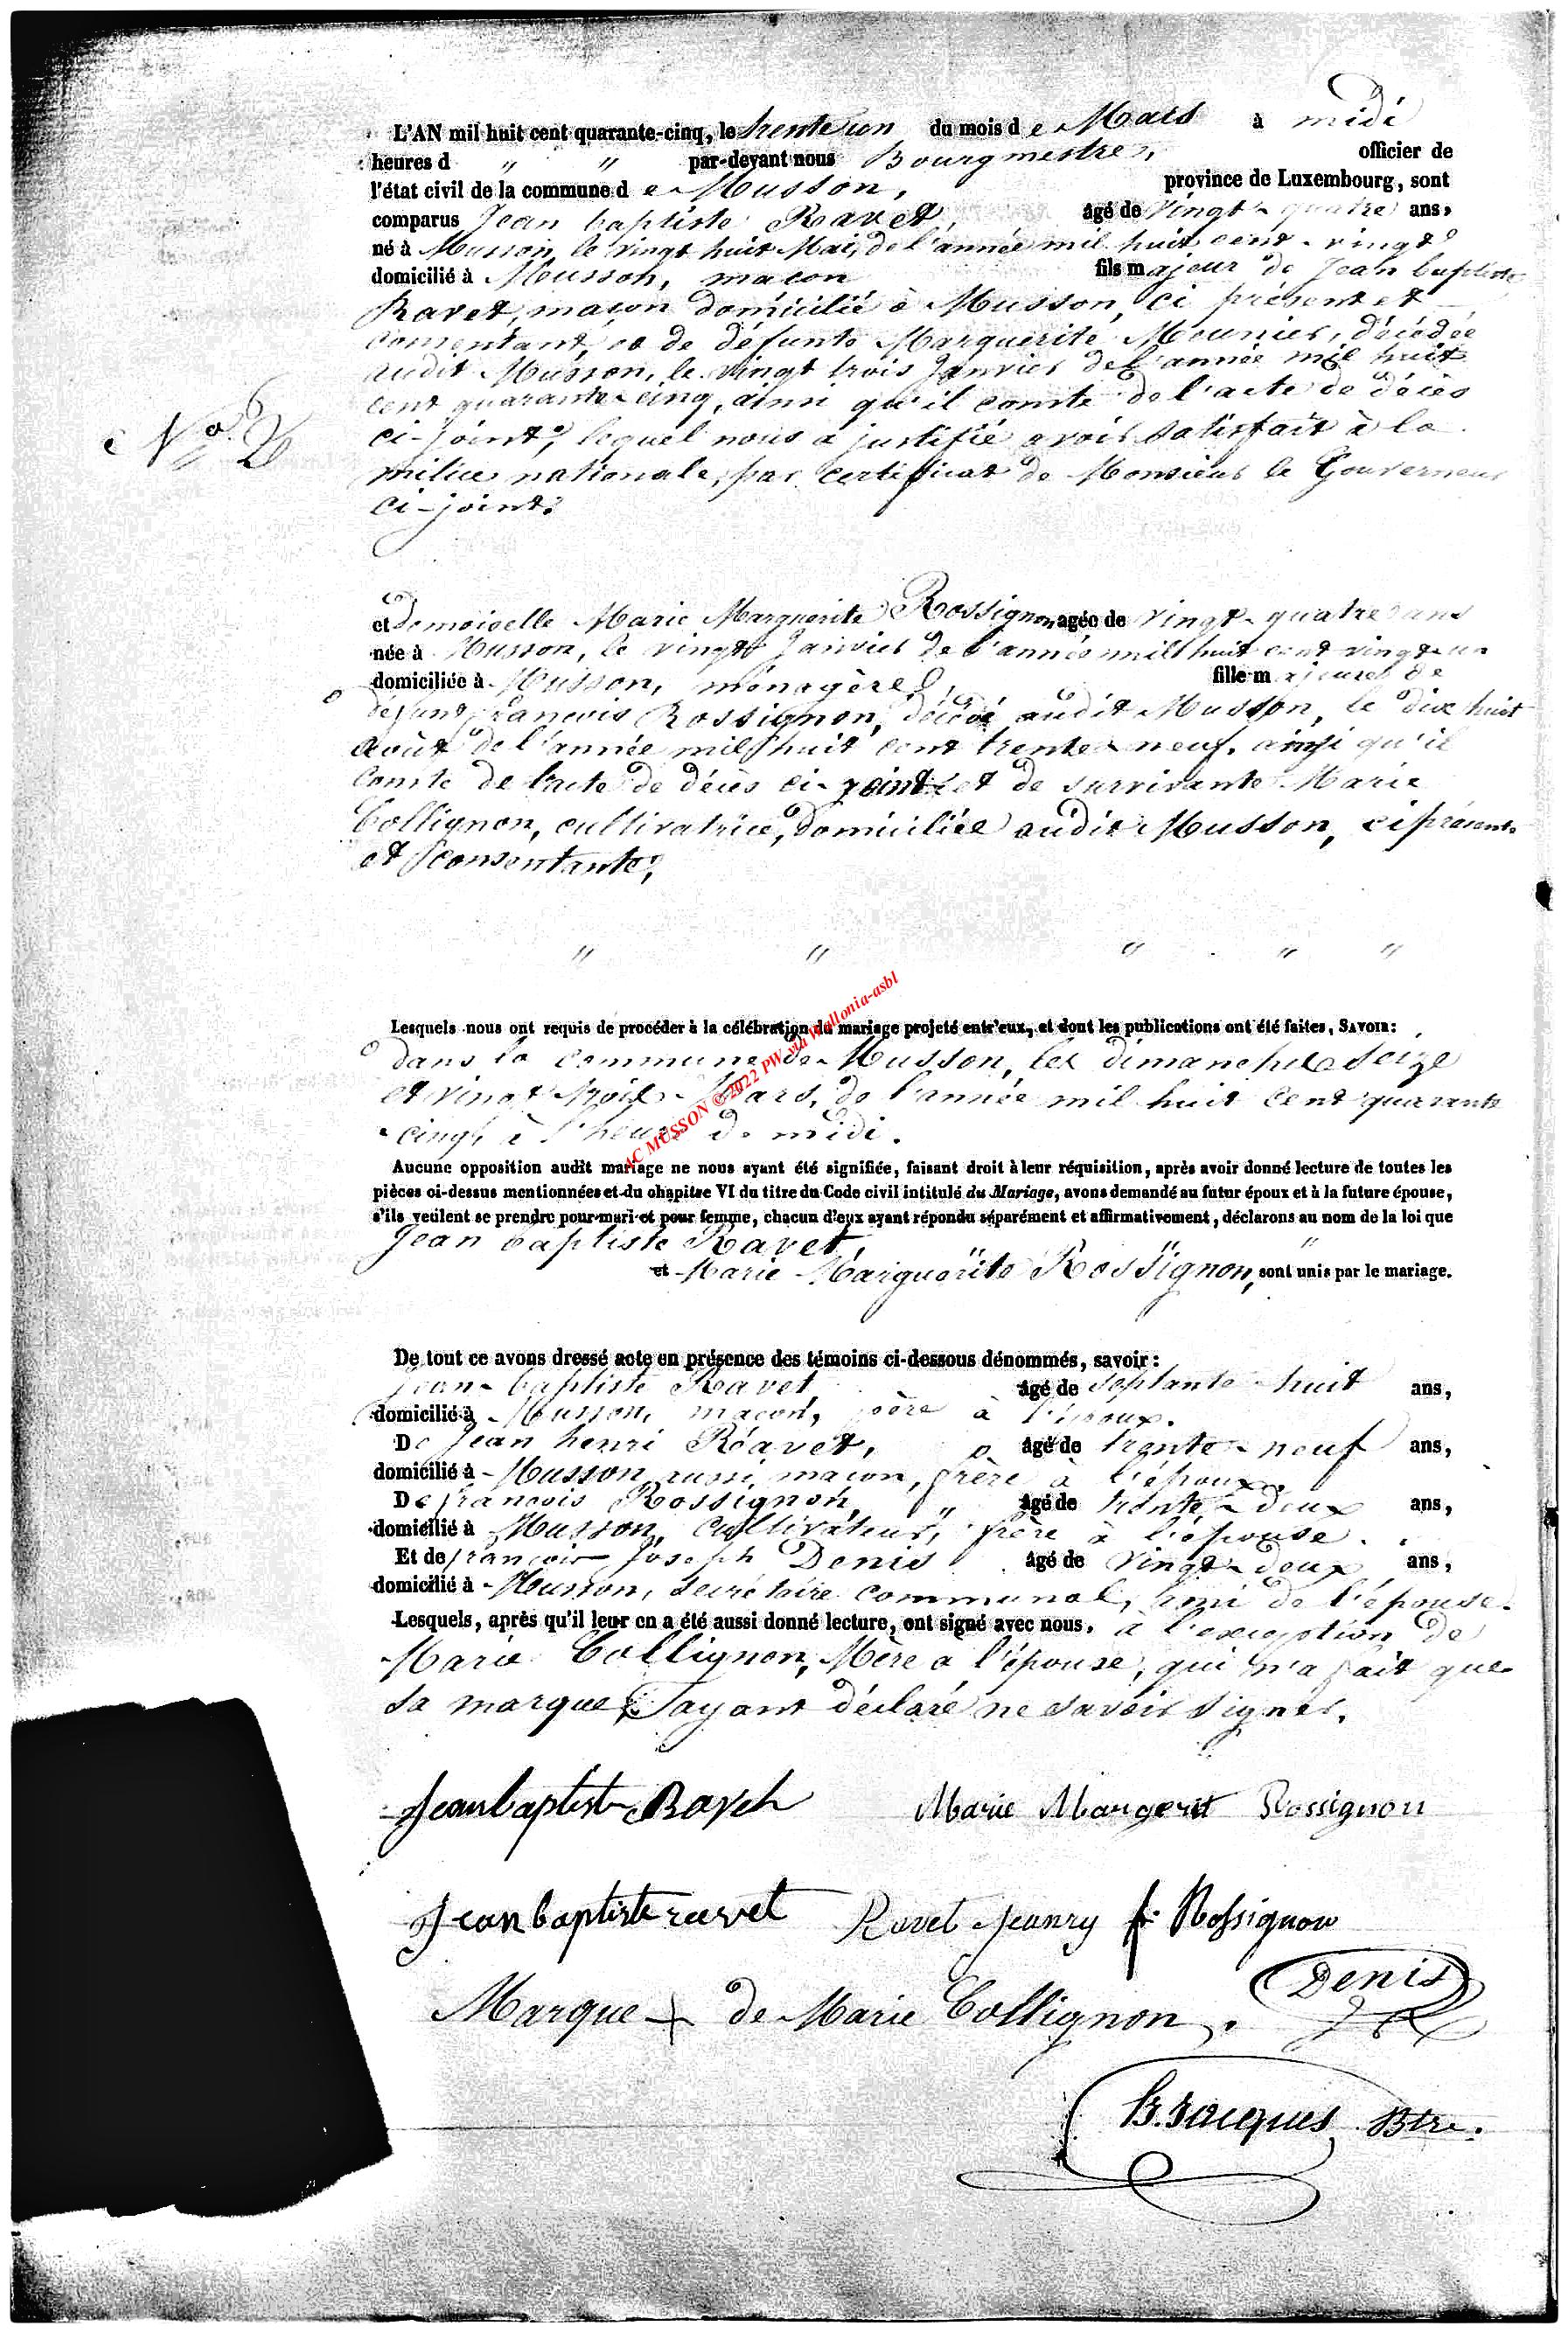 L'AN mil huit cent quarante-cinq, le trente un du mois de Mars à midi
heures d " " par-devant nous Bourgmestre, officier de
l'état civil de la commune de Musson, province de Luxembourg, sont
comparus Jean baptiste Ravet, âgé de vingt-quatre ans,
né à Musson, le vingt huit Mai, de l'année mil huit cent-vingt
domicilié à Musson, macon fils majeur de Jean baptiste
Ravet, maçon domicilié à Musson, ci présent et
consentant, et de défunte Marguerite Mounier, décédée
audit Musson, le vingt trois Janvier de l'année mil huit
cent quarante-cinq, ainsi qu'il conste de l'acte de décès
N° 6
ci-joint, lequel nous a justifié avoir satisfait à la
milice nationale, par certificat de Monsieur le Gouverneur
ci-joint.
et demoiselle Marie Marguerite Rossignon, agée de vingt-quatre ans
née à Musson, le vingt Janvier de l'année mil huit cent vingt-un
domiciliée à Musson, ménagère, fille majeure de
défunt francois Rossignon, décédé audit Musson, le dix huit
Août de l'année mil huit cent trente-neuf, ainsi qu'il
conste de l'acte de décès ci-joint et de survivante Marie
Collignon, cultivatrice, domiciliée audit Musson, ci présente
et consentante,
" " " " "
Lesquels nous ont requis de procéder à la célébration du mariage projeté entr'eux, et dont les publications ont été faites, SAVOIR:
dans la commune de Musson, les dimanches seize
et vingt trois Mars, de l'année mil huit cent quarante
-cinq, à l'heure de midi.
AC MUSSON ©2022 PW via Wallonia-asbl
Aucune opposition audit mariage ne nous ayant été signifiée, faisant droit à leur réquisition, après avoir donné lecture de toutes les
pièces ci-dessus mentionnées et du chapitre VI du titre du Code civil intitulé du Mariage, avons demandé au futur époux et à la future épouse,
s'ils veulent se prendre pour mari et pour femme, chacun d'eux ayant répondu séparément et affirmativement, déclarons au nom de la loi que
Jean baptiste Ravet, " " "
et Marie Marguerite Rossignon, sont unis par le mariage.
De tout ce avons dressé acte en présence des témoins ci-dessous dénommés, savoir:
Jean-baptiste Ravet âgé de septante-huit ans,
domicilié à Musson, macon, père à l'époux.
De Jean henri Ravet, âgé de trente-neuf ans,
domicilié à Musson, aussi macon, frère à l'époux.
De francois Rossignon, " âgé de trente-deux ans,
domicilié à Musson, cultivateur, frère à l'épouse.
Et de francois Joseph Denis âgé de vingt-deux ans,
domicilié à Musson, secrétaire communal, ami de l'épouse.
Lesquels, après qu'il leur en a été aussi donné lecture, ont signé avec nous, à l'exception de
Marie Collignon, Mère à l'épouse, qui n'a fait que
sa marque, ayant déclaré ne savoir signer.
Jeanbaptiste Ravet Marie Margerit Rossignon
Jeanbaptiste ravet Ravet Jeanry f. Rossignon
Denis
Marque + de Marie Collignon.
Jacques Btre.